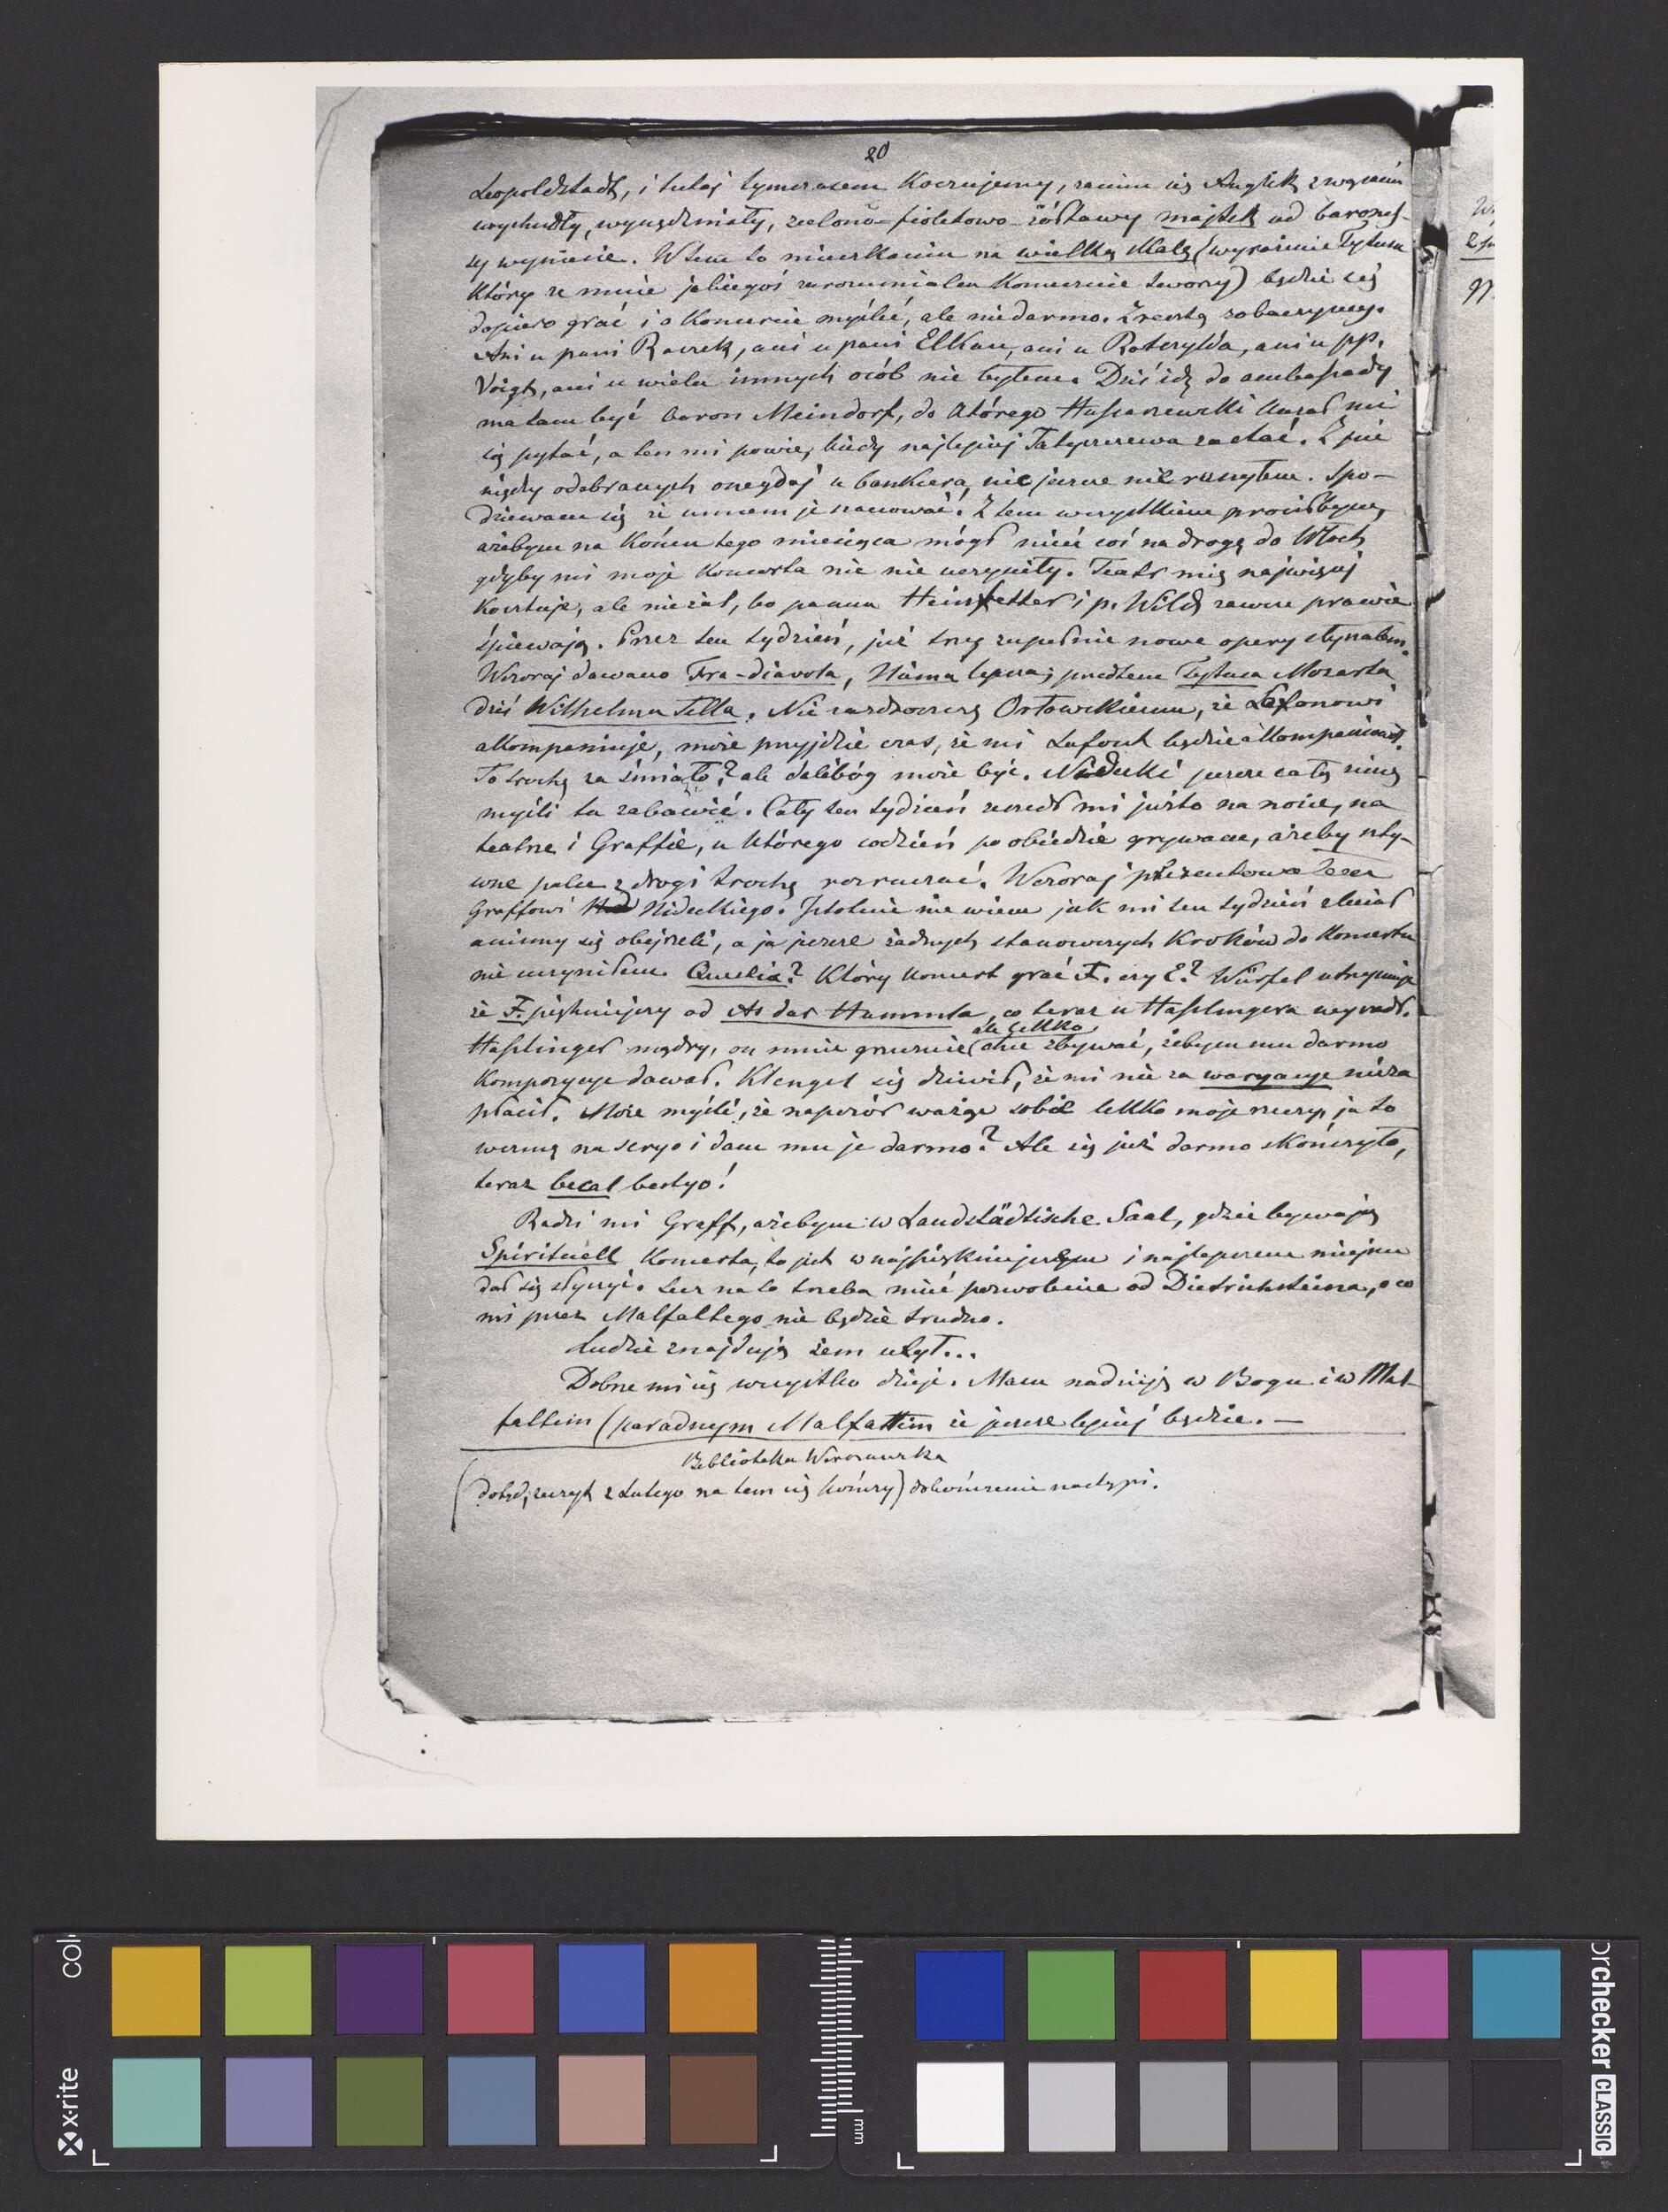 20
Leopoldstadt, i tutaj tymczasem koczujemy, zanim się Anglik
wychudły, wynędzniały, zielono-fioletowo-żółtawy majtek od barones-
sy wyniesie. W tem to mieszkaniu na wielką skalę (wyrażenie Tytusa
który ze mnie jakiegoś zarozumialca koniecznie tworzy) będzie się
dopiero grać i o koncercie myśleć, ale nie darmo. Zresztą zobaczymy.
Ani u pani Raczek, ani u pani Elkan, ani u Roterylda, ani u pp.
Voigt, ani u wielu innych osób nie byłem. Dziś idę do ambassady
ma tam być baron Meindorf, do którego Hussarzewski kazał mi
się pytać, a ten mi powie, kiedy najlepiej Tatyszczewa zastać. Z pie
niędzy odebranych onegdaj u bankiera, nic jeszcze nie ruszyłem. Spo-
dziewam się że umiem je szanować! Z tem wszystkiem prosiłbym,
ażebym na końcu tego miesiąca mógł mieć coś na drogę do Włoch
gdyby mi moje koncerta nic nie uczyniły. Teatr mię najwięcej
kosztuje, ale nie żal, bo panna Heinfetter i p. Wild zawsze prawie
śpiewają. Przez ten tydzień, już trzy zupełnie nowe opery słyszałem.
Wczoraj dawano Fra-diavola, Niema lepsza; przedtem Tytusa Mozarta
dziś Wilhelma Tella. Nie zazdroszczę Orłowskiemu, że Lafonowi
akompaniuje, może przyjdzie czas, że mi Lafont będzie akompaniował.
To trochę za śmiało? ale dalibóg może być. Nidecki jeszcze całą zimę
myśli tu zabawić. Cały ten tydzień zeszedł mi jużto na nosie, na
teatrze i Graffie, u którego codzień po obiedzie grywam, ażeby szty-
wne palce z drogi trochę rozruszać. Wczoraj prezentowałem
Graffowi Nideckiego. Istotnie nie wiem jak mi ten tydzień zleciał
animy się obejrzeli, a ja jeszcze żadnych stanowczych kroków do koncertu
nie uczyniłem. Quaelia? Który koncert grać F. czy E? Würfel utrzymuje
że F. piękniejszy od As dur Hummla, co teraz u Hasslingera wyszedł.
Hasslinger mądry, on mnie grzecznie ale lekko chce zbywać, żebym mu darmo
kompozycye dawał. Klengel się dziwił, że mi nie za waryacye nieza
płacił. Może myśli, że napozór ważąc sobie lekko moje rzeczy, ja to
wezmę na seryo i dam mu je darmo? Ale się już darmo skończyło,
teraz becal bestyo!
Radzi mi Graff, ażebym w Landständtische Saal, gdzie bywają
Spirituell koncerta, to jest w najpiękniejszem i najlepszem miejscu
dał się słyszyć. Lecz na to trzeba mieć pozwolenie od Dietrichsteina, o co
mi przez Malfattego nie będzie trudno.
Ludzie znajdują żem utył...
Dobrze mi się wszystko dzieje. Mam nadzieję w Bogu i w Mal-
fattim (paradnym Malfattim że jeszcze lepiej będzie. —
Biblioteka Warszawska
(dotąd; zeszyt z Lutego na tem się kończy) dokończenie nastąpi.